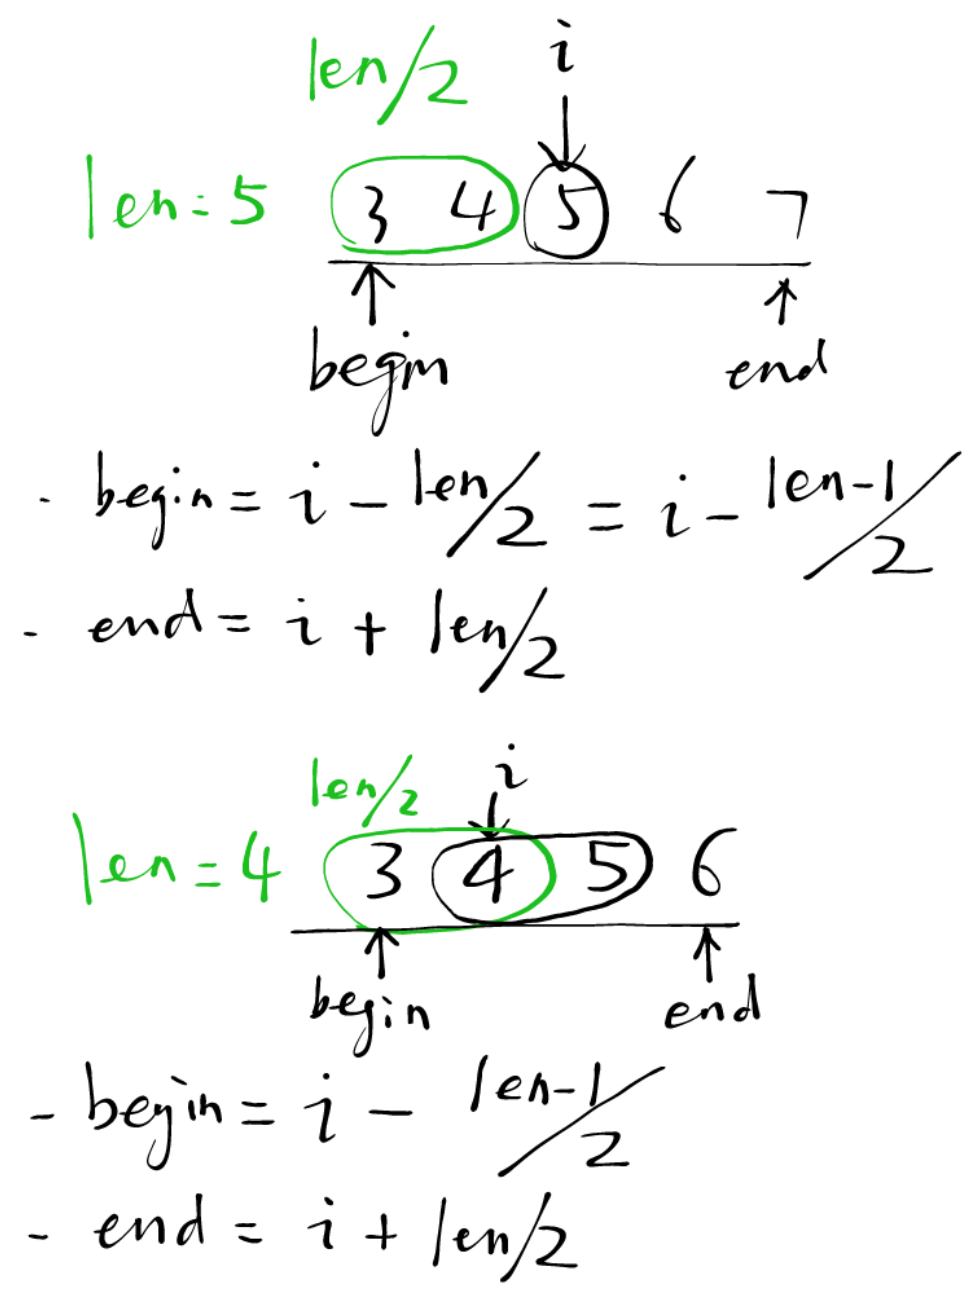 len/2 i
len=5 3 4 5 6 7
begin end
- begin = i - len/2 = i - len-1/2
- end = i + len/2
len/2 i
len=4 3 4 5 6
begin end
- begin = i - len-1/2
- end = i + len/2